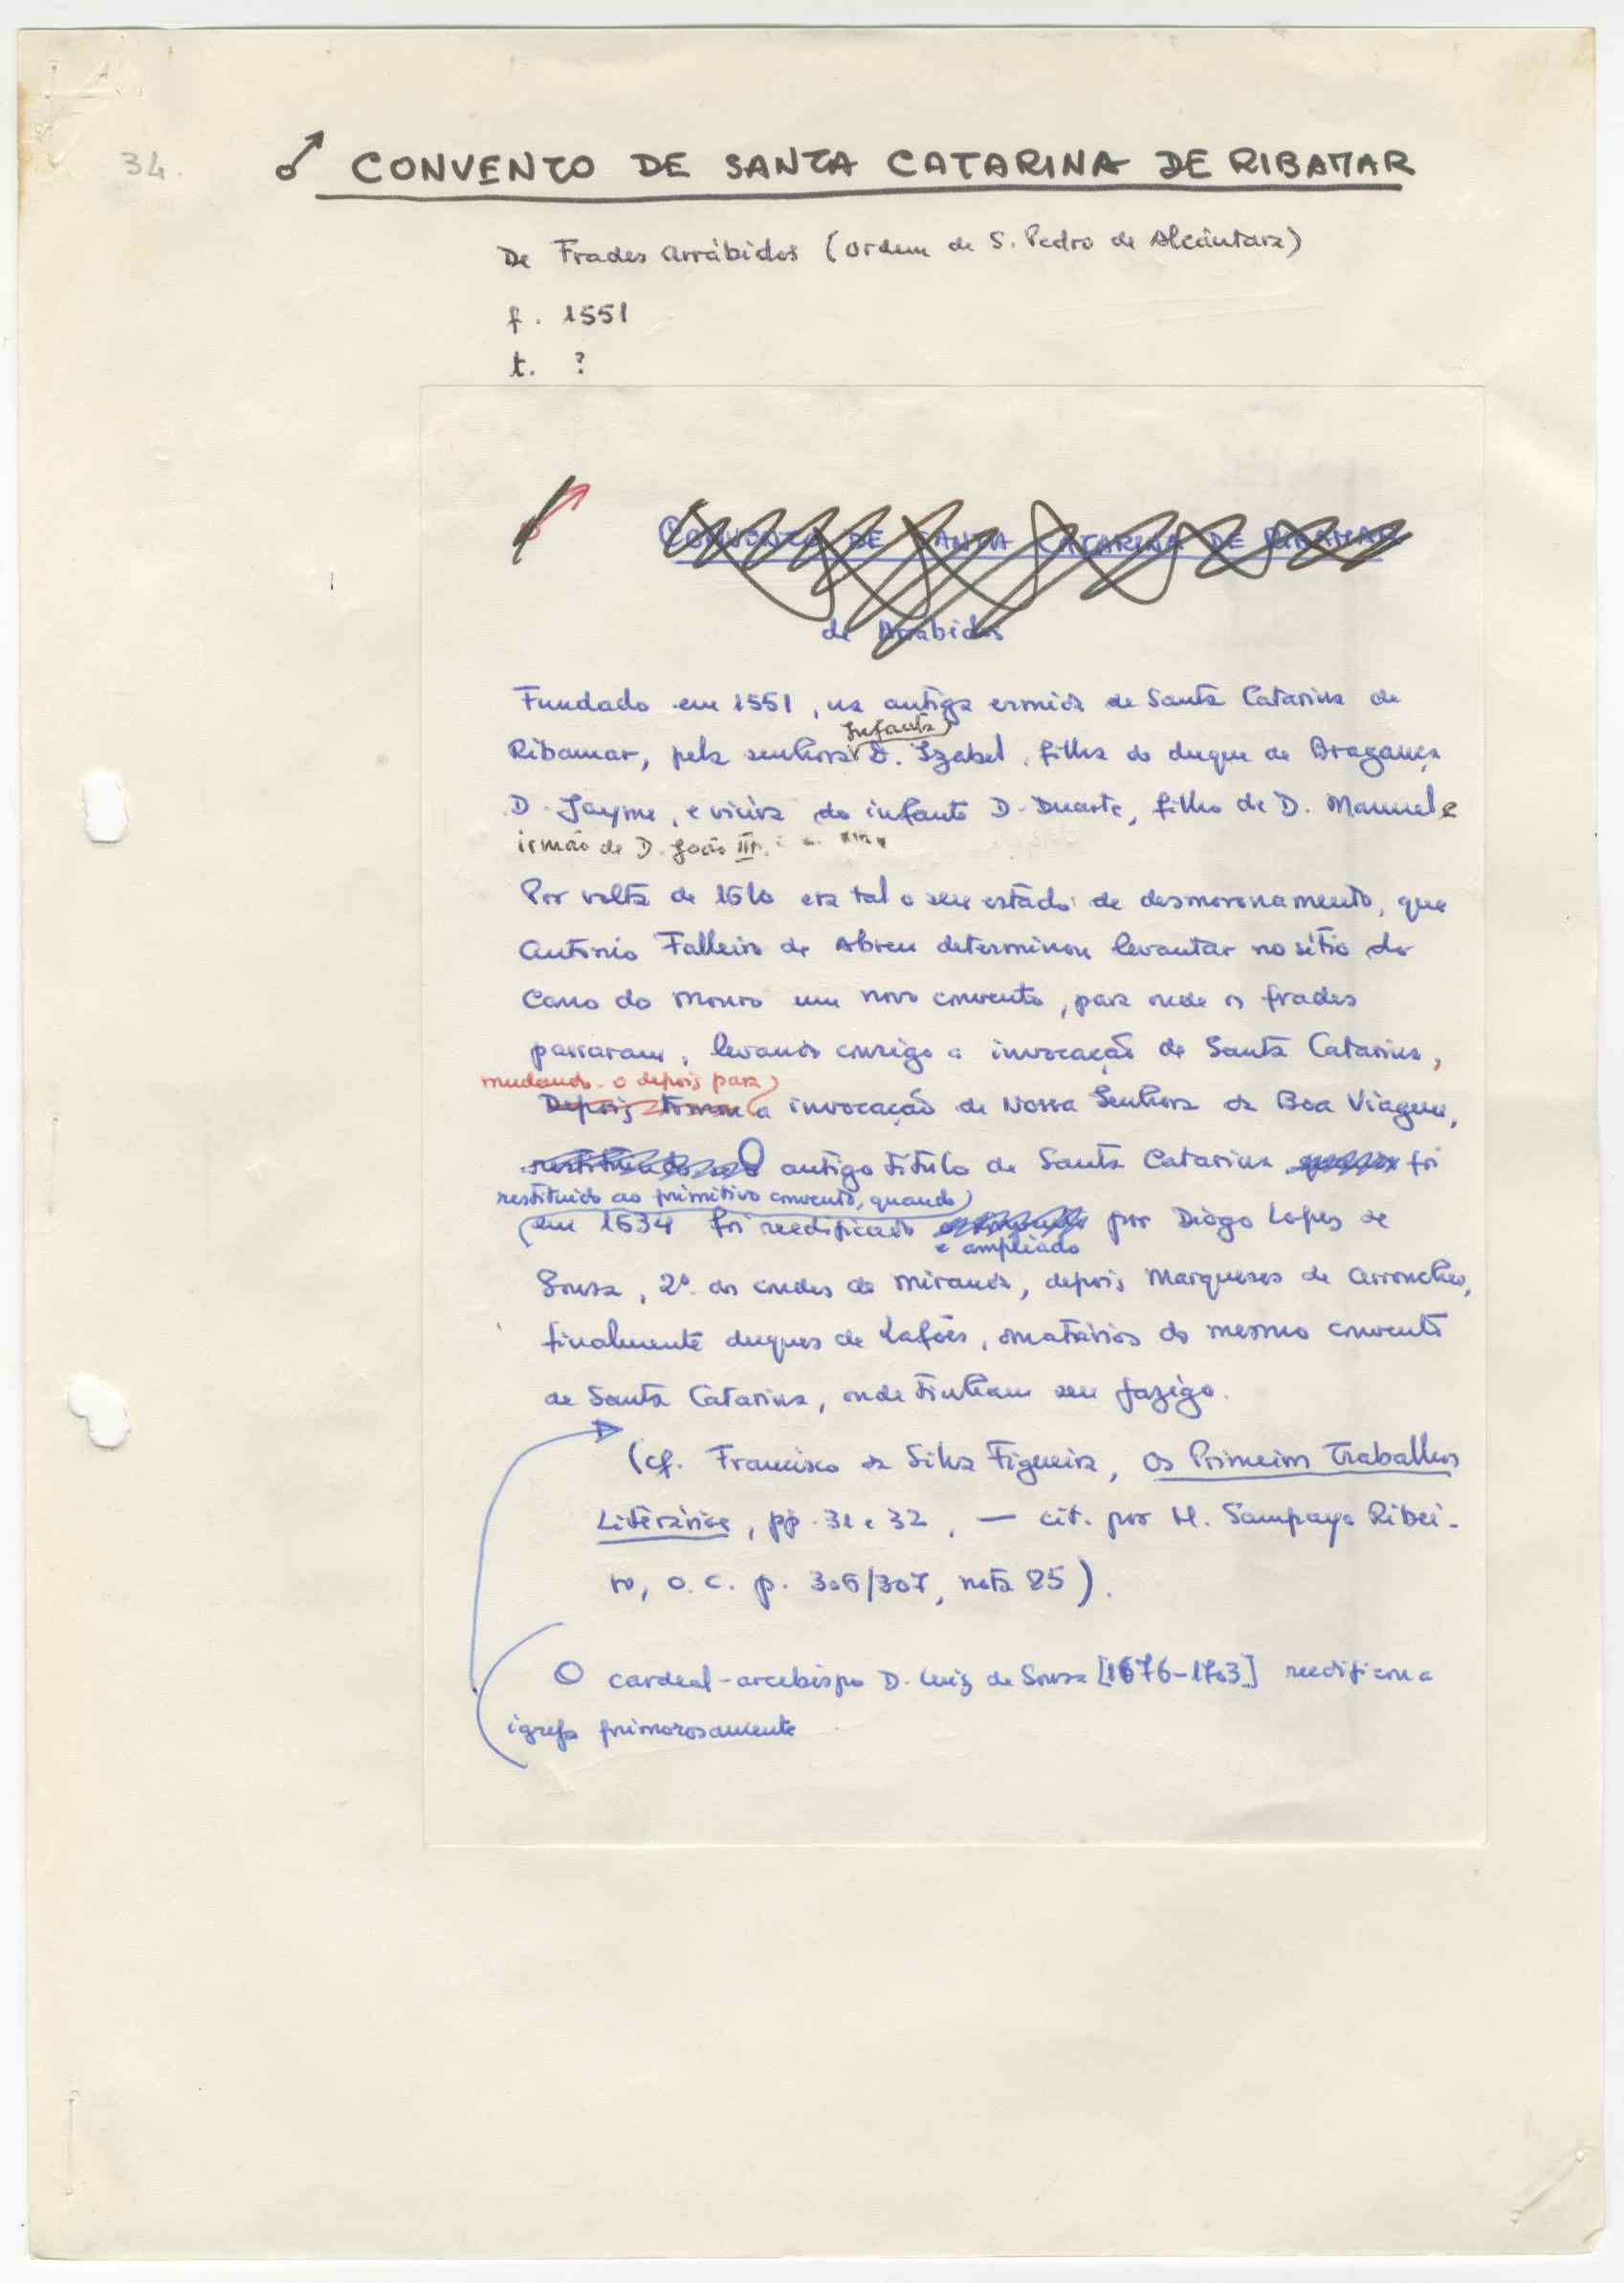 34.
♂ CONVENTO DE SANTA CATARINA DE RIBAMAR
De Frades Arrábidos (ordem de S. Pedro de Alcântara)
f. 1551
t. ?
CONVENTO DE SANTA CATARINA DE RIBAMAR
de Arrábidos
Fundado em 1551, na antiga ermida de Santa Catarina de
Infanta
Ribamar, pela senhora D. Izabel, filha do duque de Bragança
D. Jayme, e viúva do infante D. Duarte, filho de D. Manuel e
irmão de D. João III.
Por volta de 1610 era tal o seu estado de desmoronamento, que
António Falleiro de Abreu determinou levantar no sítio do
Cano do Mouro um novo convento, para onde os frades
passaram, levando consigo a invocação de Santa Catarina,
mudando-o depois para
Depois tomou a invocação de Nossa Senhora da Boa Viagem,
O antigo título de Santa Catarina foi
restituído ao primitivo convento, quando
em 1634 foi reedificado por Diogo Lopes de
e ampliado
Sousa, 2º dos condes de Miranda, depois Marqueses de Arronches,
finalmente duques de Lafões, donatários do mesmo convento
de Santa Catarina, onde tinham seu jazigo.
(cf. Francisco da Silva Figueira, Os Primeiros Trabalhos
Literários, pp. 31 e 32, — cit. por M. Sampayo Ribei-
ro, o. c. p. 306/307, nota 85).
O cardeal-arcebispo D. Luiz de Sousa [1676-1703] reedificou a
igreja primorosamente